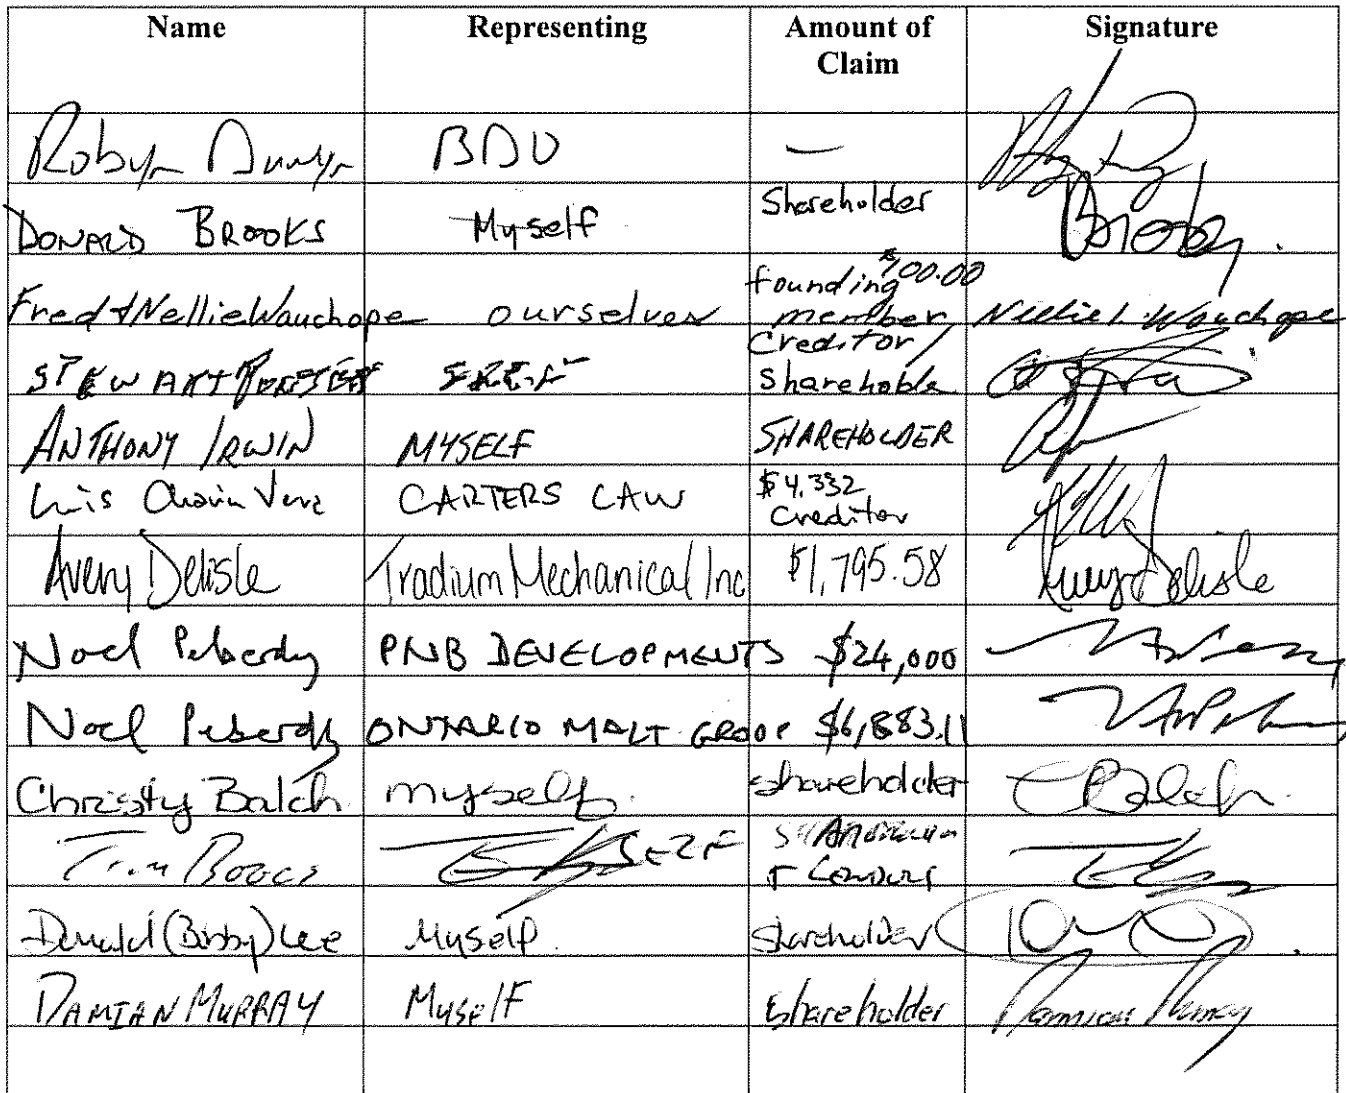 Name Representing Amount of Signature
Claim
Robyn BDO —
DONALD BROOKS Myself Shareholder Brooks.
Fred & Nellie Wauchope ourselves founding $100.00 member Nellie I. Wauchope
STEWART SELF Creditor / Shareholder
ANTHONY IRWIN MYSELF SHAREHOLDER
Luis Vera CARTERS LAW $4,332 Creditor
Avery Delisle Tradium Mechanical Inc $1,795.58 Avery Delisle
Noel Peberdy PNB DEVELOPMENTS $24,000
Noel Peberdy ONTARIO MALT GROUP $6,883.11
Christy Balch myself. shareholder C Balch.
Tim SELF
Donald (Bobby) Lee Myself. Shareholder
DAMIAN MURRAY Myself Shareholder Damian Murray